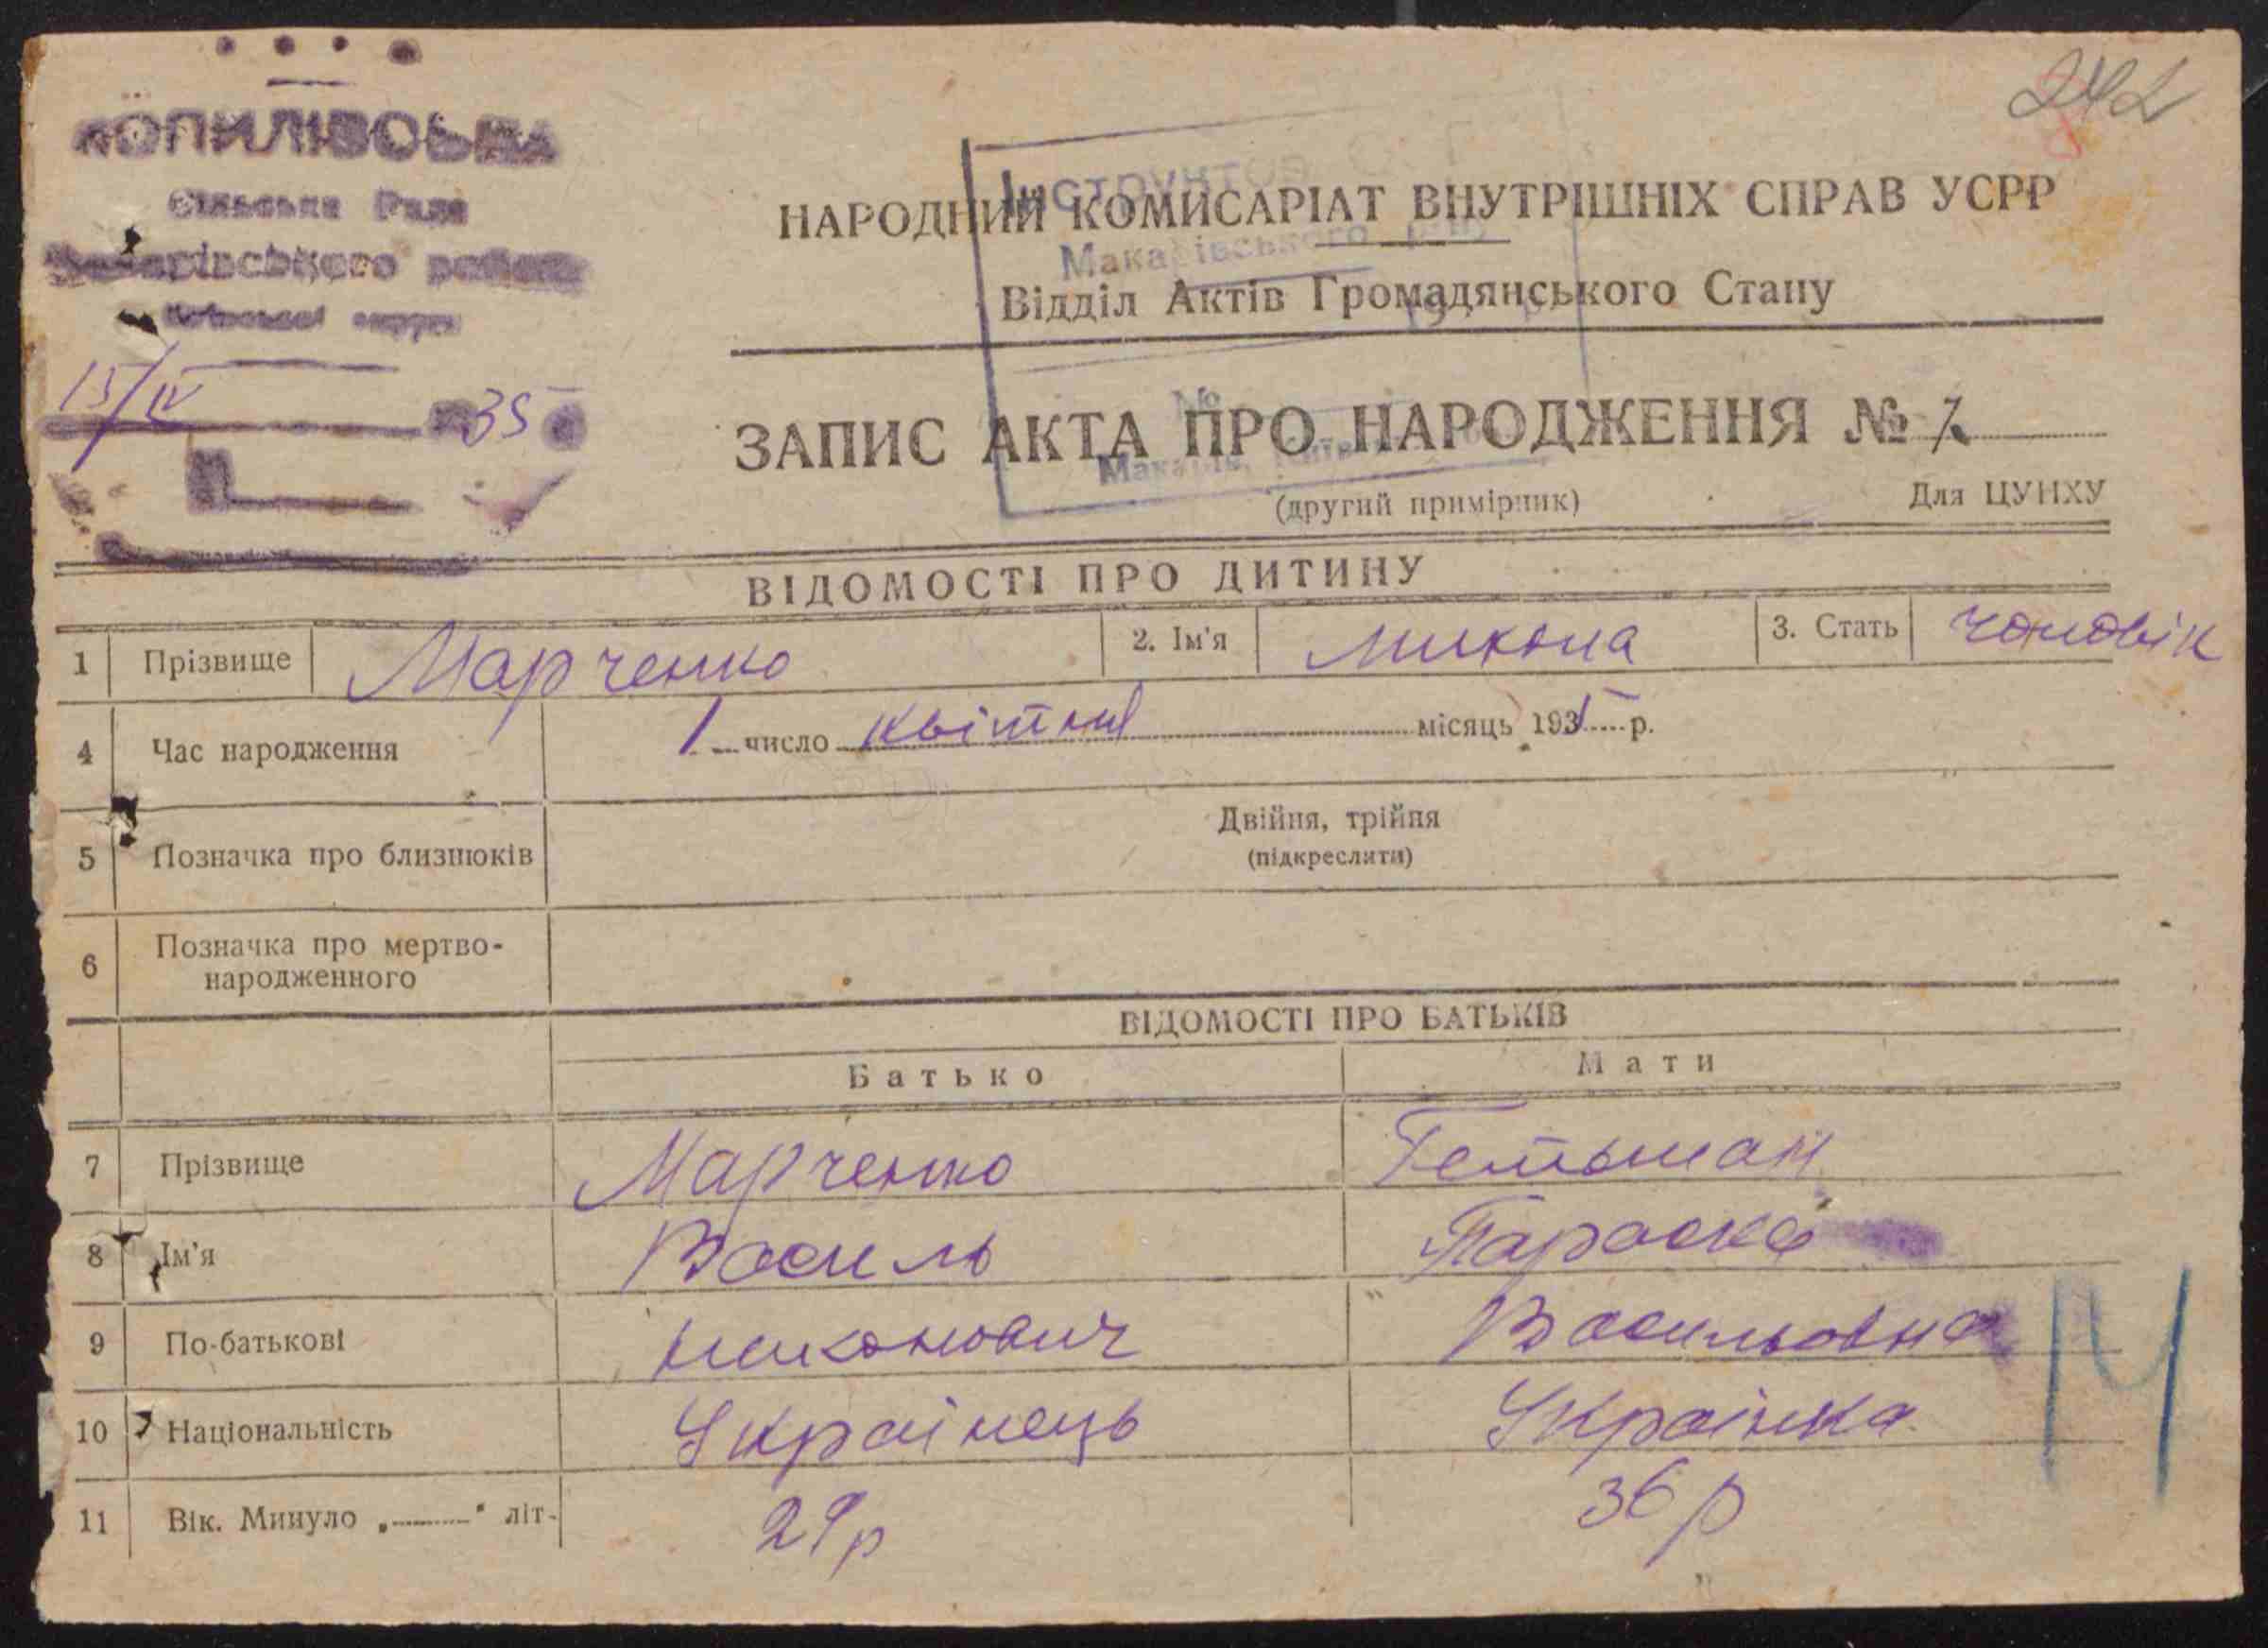 КОПИЛІВСЬКА
Сільська Рада
Макарівського району
15/IV 35
242
Макарівського
НАРОДНИЙ КОМИСАРІАТ ВНУТРІШНІХ СПРАВ УСРР
Відділ Актів Громадянського Стану
ЗАПИС АКТА ПРО НАРОДЖЕННЯ №
(другий примірник)
Для ЦУНХУ
ВІДОМОСТІ ПРО ДИТИНУ
1 Прізвище Марченко 2. Ім'я Микола 3. Стать чоловік
4 Час народження 1 число квітня місяць 1935 р.
5 Позначка про близнюків Двійня, трійня
(підкреслити)
6 Позначка про мертво-
народженного
ВІДОМОСТІ ПРО БАТЬКІВ
Батько Мати
7 Прізвище Марченко Гетьман
8 Ім'я Василь Параска
9 По-батькові Никонович Васильовна
10 Національність Українець Українка
11 Вік. Минуло „ " літ- 29р 36р
14